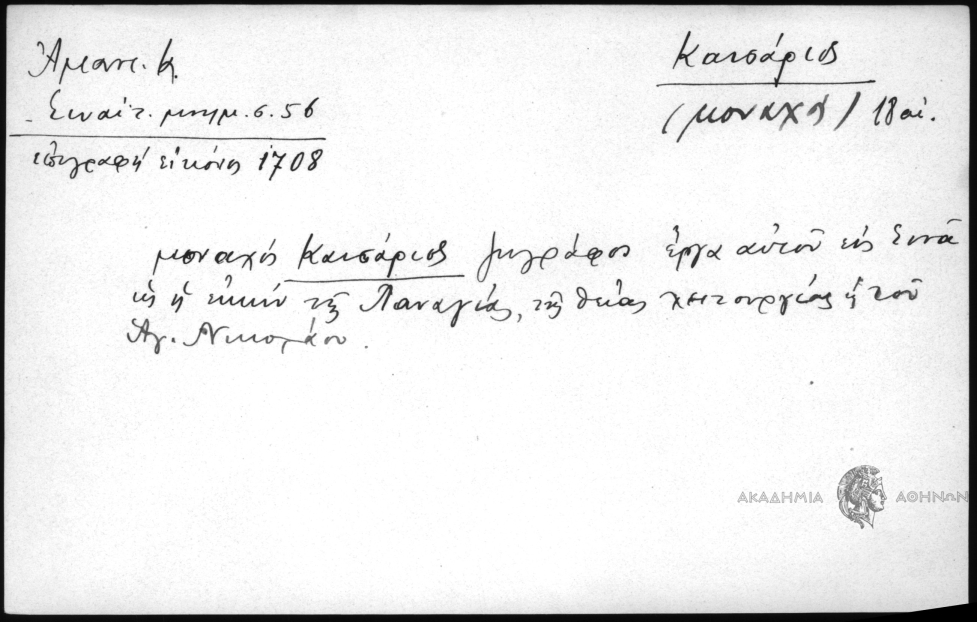 Ἀμαντ. Κ.
Σιναϊτ. μνημ. σ. 56
ἐπιγραφή εἰκόνος 1708
Καισάριος
(μοναχός) 18 αἰ.
μοναχός Καισάριος ζωγράφος ἔργα αὐτοῦ εἰς Σινᾶ
ὡς ἡ εἰκών τῆς Παναγίας, τῆς θείας λειτουργίας ἡ τοῦ
Ἁγ. Νικολάου.
ΑΚΑΔΗΜΙΑ ΑΘΗΝΩΝ